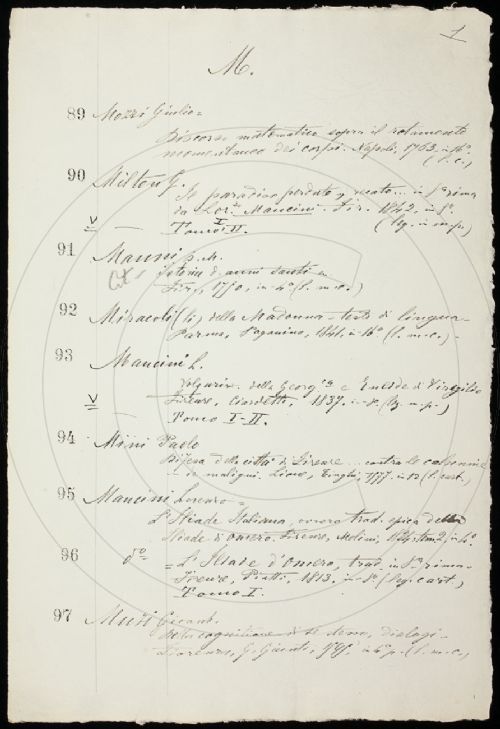 1
M.
89 Mozzi Giulio =
Discorso matematico sopra il rotamento
momentaneo dei corpi. Napoli, 1763. in 4º.
(l. c.)
90 Milton G.
Il paradiso perduto, recato ... in 8ª rima
da Lor.º Mancini. Fir. 1842, in 8º.
V Tomo I II. (leg. in m.p.)
91 Manni D. M.
Istoria d. anni santi
Fir., 1750, in-4º (l. m. c.)
92 Miracoli (li) della Madonna - testo di lingua -
Parma, Paganino, 1841, in-16º (l. m. c.) -
93 Mancini L.
Volgarizz. della Georg.ca e Eneide di Virgilio
V Firenze, 1837. in-8º. (leg. m. p.)
Tomo I-II.
94 Mini Paolo
Difesa della città di Firenze ... contro le calunnie
de maligni. Lione, 1577. in 12 (l. cart.)
95 Mancini Lorenzo =
L'Iliade Italiana, ovvero trad. epica della
Iliade d'Omero. Firenze, in 4º.
96 dº = L'Iliade d'Omero, trad. in 8ª rima =
Firenze, Piatti, 1818. in-8º. (leg. cart.)
Tomo I.
97
Della cognitione di se stesso, dialogi -
Fiorenza, G. Giunti, in 4º p. (l. m. c.)